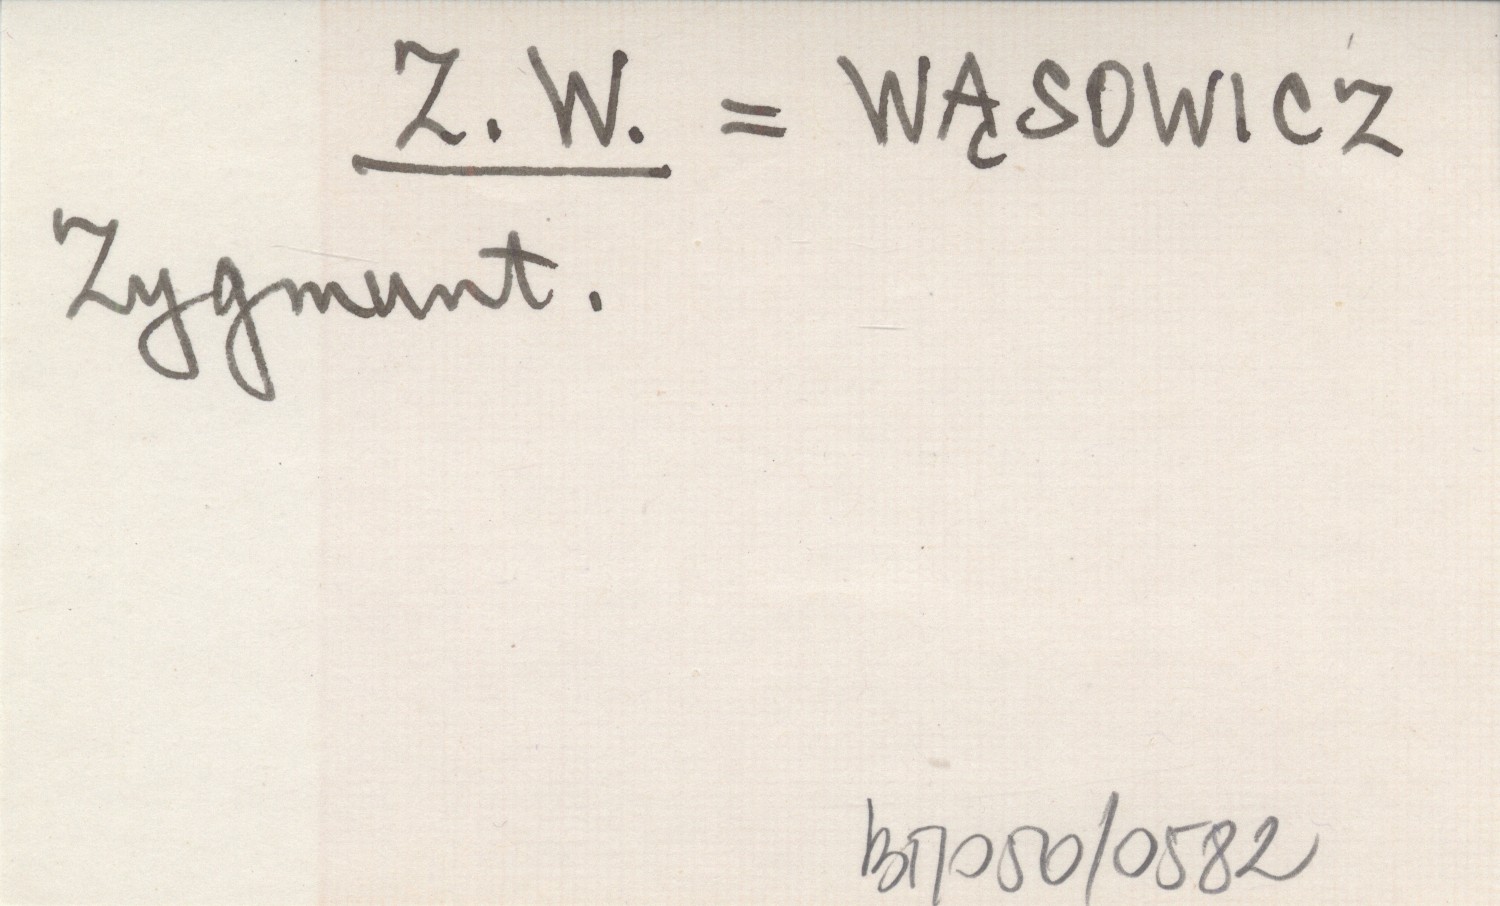 Z. W. = WĄSOWICZ
Zygmunt.
BП050/0582